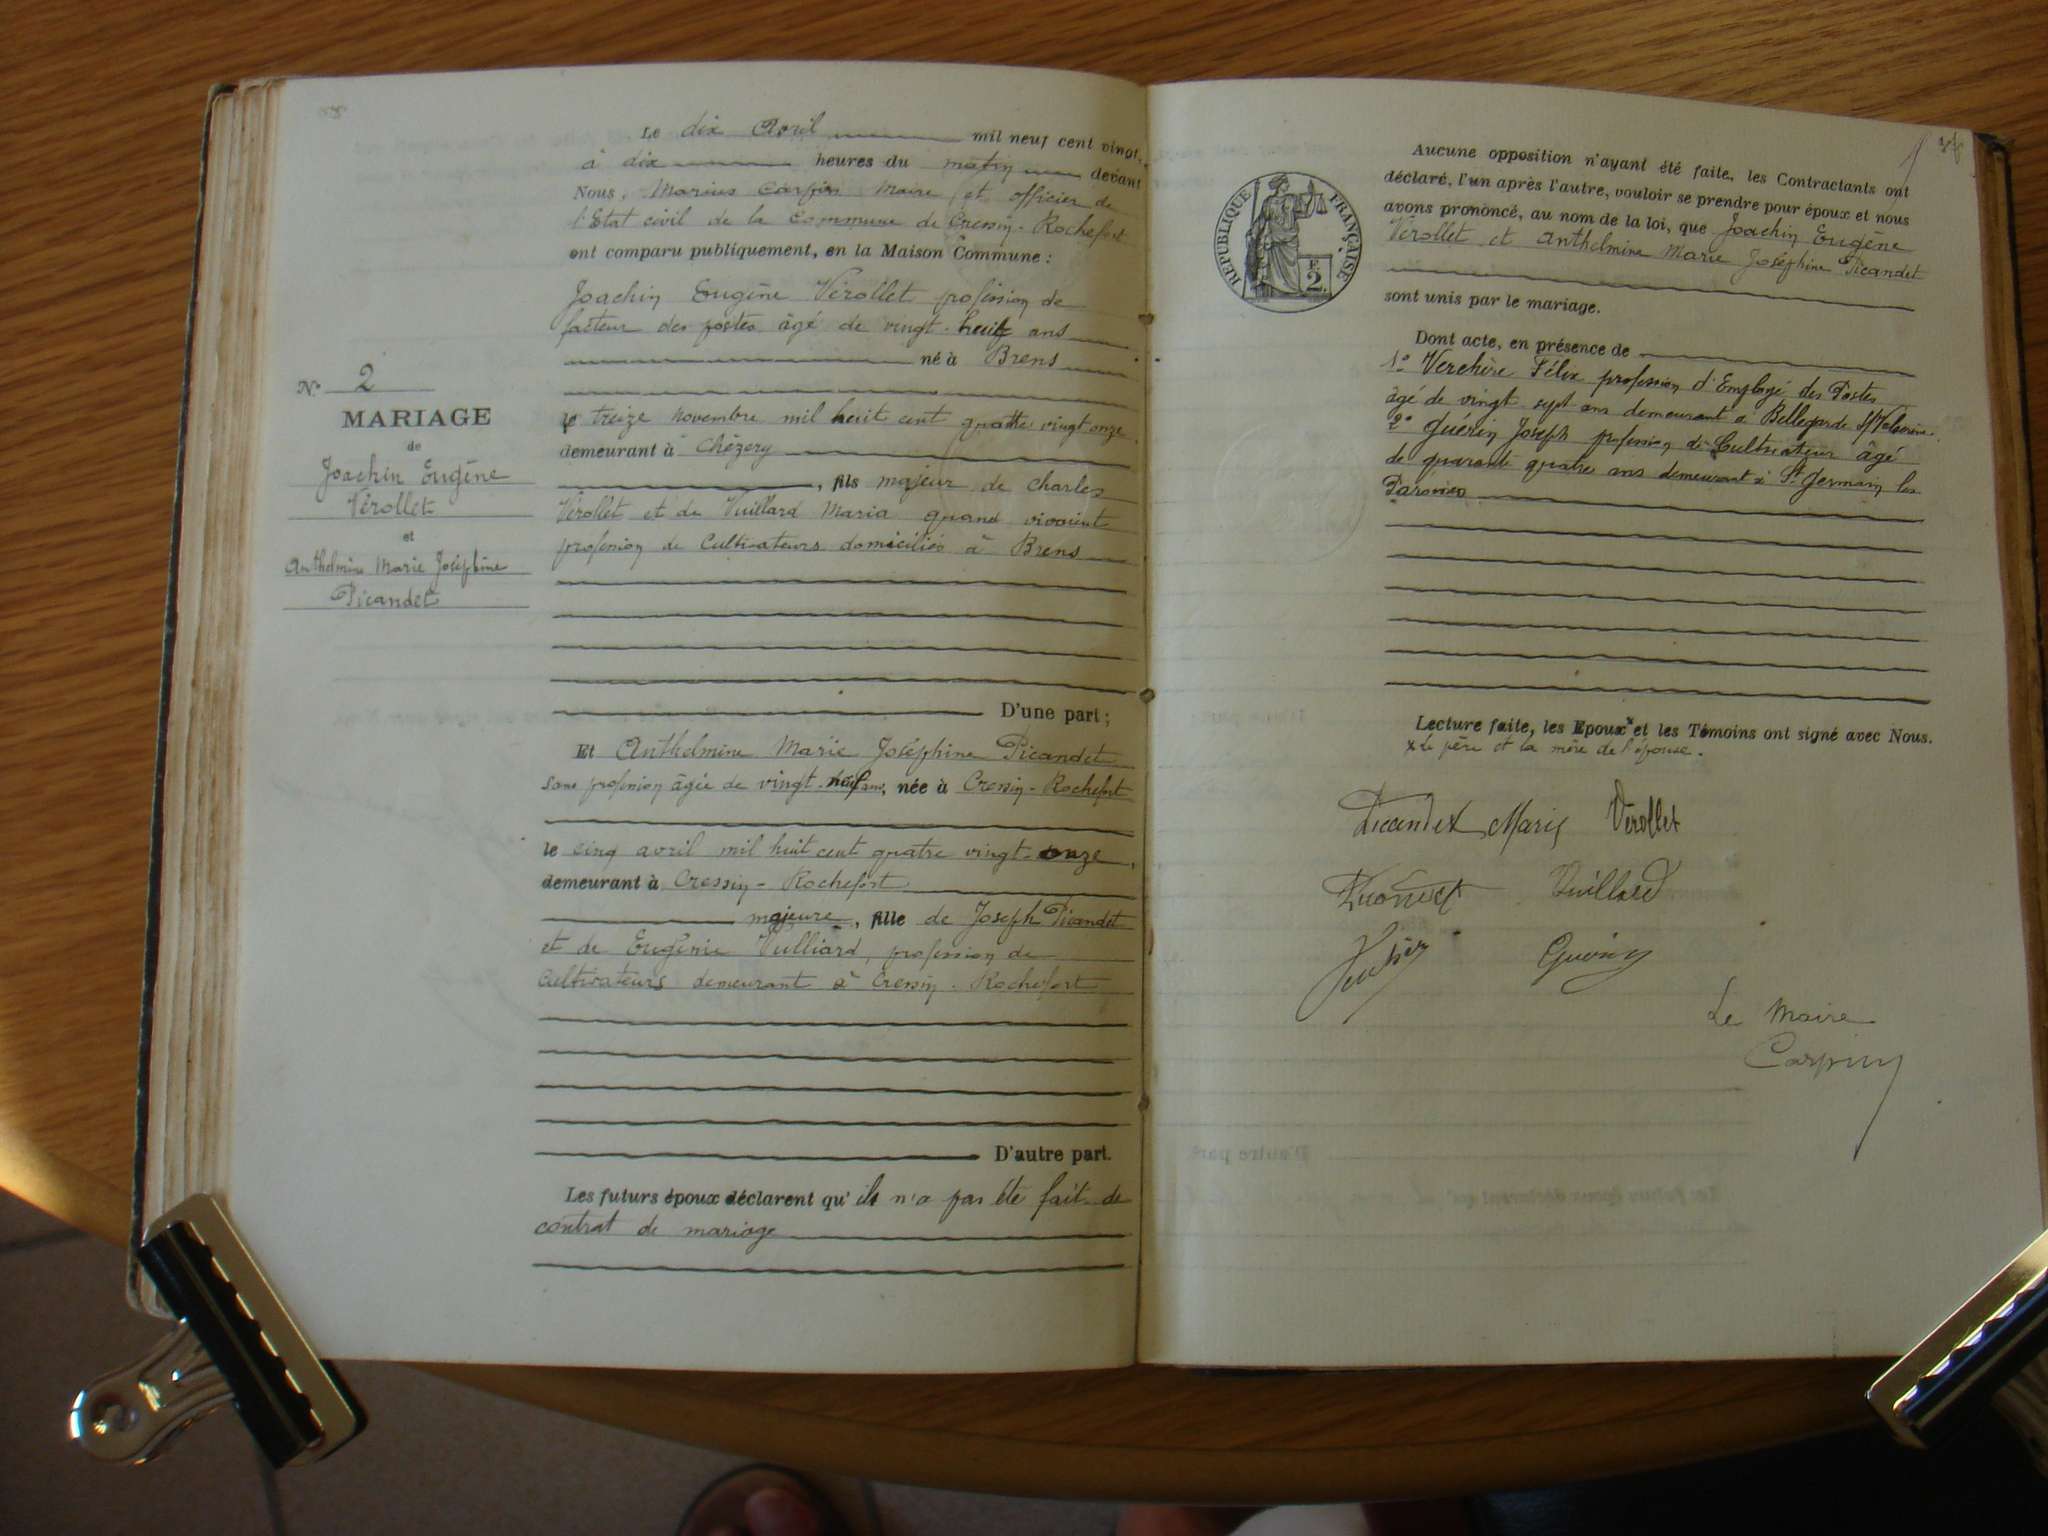 Le dix Avril mil neuf cent vingt
à dix heures du matin devant
Nous, Marius Carpin Maire et officier de
l'Etat civil de la Commune de Cressin-Rochefort
ont comparu publiquement, en la Maison Commune :
Joachin Eugène Vérollet profession de
facteur des postes âgé de vingt-huit ans
né à Brens
N° 2
MARIAGE
de
Joachin Eugène
Vérollet
et
Anthelmine Marie Joséphine
Picandet
le treize novembre mil huit cent quatre vingt onze
demeurant à Chézery
, fils majeur de Charles
Vérollet et de Vuillard Maria quand vivaient
profession de Cultivateurs domiciliés à Brens
D'une part ;
Et Anthelmine Marie Joséphine Picandet
sans profession âgée de vingt-neuf ans, née à Cressin-Rochefort
le cinq avril mil huit cent quatre vingt-onze,
demeurant à Cressin-Rochefort
majeure, fille de Joseph Picandet
et de Eugénie Vulliard, profession de
Cultivateurs demeurant à Cressin-Rochefort
D'autre part.
Les futurs époux déclarent qu'il n'a pas été fait de
contrat de mariage
RÉPUBLIQUE FRANÇAISE
2
Aucune opposition n'ayant été faite, les Contractants ont
déclaré, l'un après l'autre, vouloir se prendre pour époux et nous
avons prononcé, au nom de la loi, que Joachin Eugène
Vérollet et Anthelmine Marie Joséphine Picandet
sont unis par le mariage.
Dont acte, en présence de
1° Verchère Félix profession d'Employé des Postes
âgé de vingt sept ans demeurant à Bellegarde s/Valserine.
2° Guérin Joseph profession de Cultivateur âgé
de quarante quatre ans demeurant à St Germain les
Paroisses
Lecture faite, les Epoux x et les Témoins ont signé avec Nous.
x Le père et la mère de l'épouse.
Picandet Marie Vérollet
Picandet Vuillard
Guérin
Le Maire
Carpin